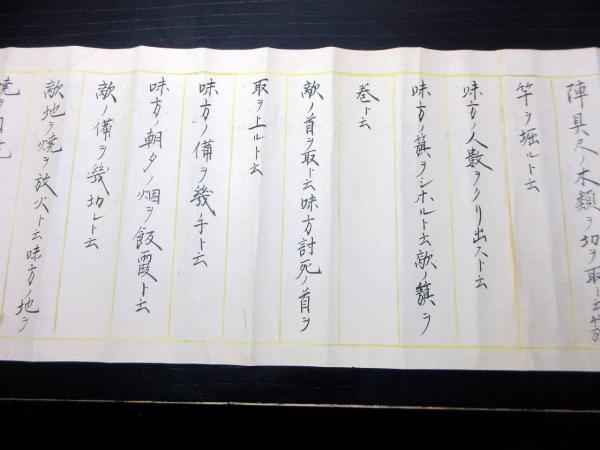 陣具尺ノ木類ヲ切ヲ取ト云
竿ヲ堀ルト云
味方ノ人数ヲクリ出スト云
味方ノ籏ヲシホルト云敵ノ籏ヲ
巻ト云
敵ノ首ヲ取ト云味方討死ノ首ヲ
取ヲ上ルト云
味方ノ備ヲ幾手ト云
味方ノ朝夕ノ烟ヲ飯霞ト云
敵ノ備ヲ幾切レト云
敵地ヲ焼ヲ放火ト云味方ノ地ヲ
焼ヲ